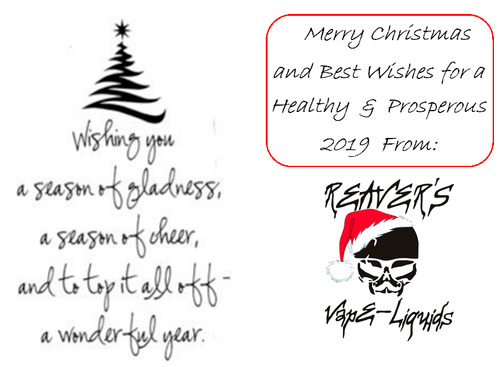 Wishing you
a season of gladness,
a season of cheer,
and to top it all off-
a wonderful year.
Merry Christmas
and Best Wishes for a
Healthy & Prosperous
2019 From:
REAVER'S
VapE-Liquids